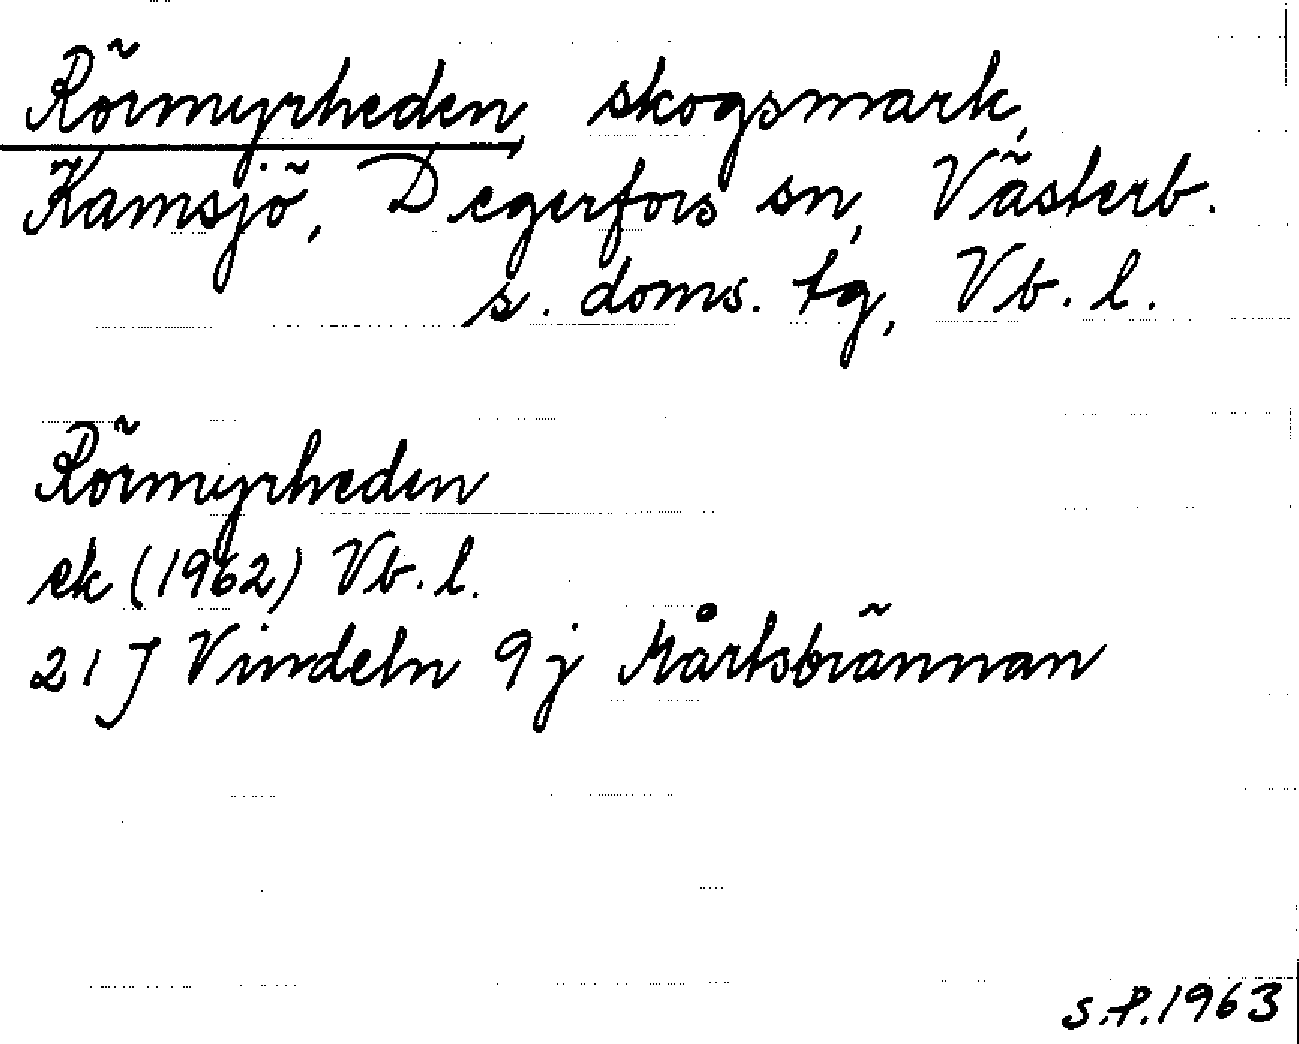 Rörmyrheden, skogsmark,
Kamsjö, Degerfors sn, Västerb.
s. doms. tg, Vb. l.
Rörmyrheden
ek (1962) Vb. l.
21J Vindeln 9j Mårtsbrännan
S.P. 1963